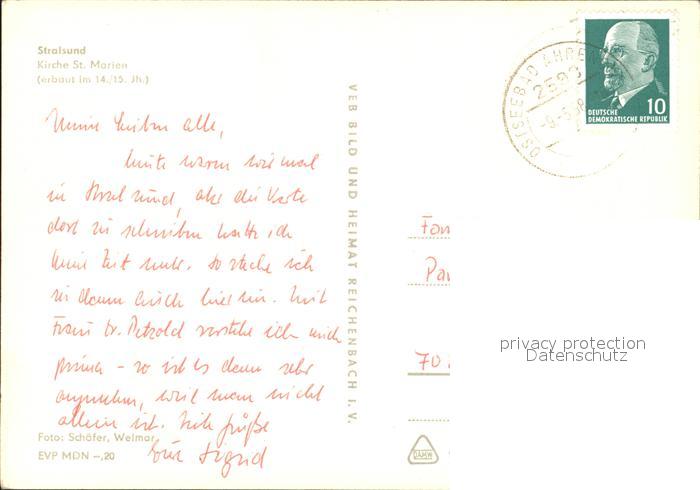 Stralsund
Kirche St. Marien
(erbaut im 14./15. Jh.)
OSTSEEBAD AHREN
2593
-9.-5.68
10
DEUTSCHE
DEMOKRATISCHE REPUBLIK
Meine lieben alle,
heute waren wir mal
in Stralsund, aber die Karte
dort zu schreiben hatte ich
keine Zeit mehr. So stecke ich
sie dann auch hier ein. Mit
Frau Dr. Petzold verstehe ich mich
prima - so ist es dann sehr
angenehm, weil man nicht
allein ist. Viele Grüße
Eure Sigrid
Foto: Schäfer, Weimar
EVP MDN -,20
VEB BILD UND HEIMAT REICHENBACH I. V.
Fam
Pa
70
DAMW
privacy protection
Datenschutz